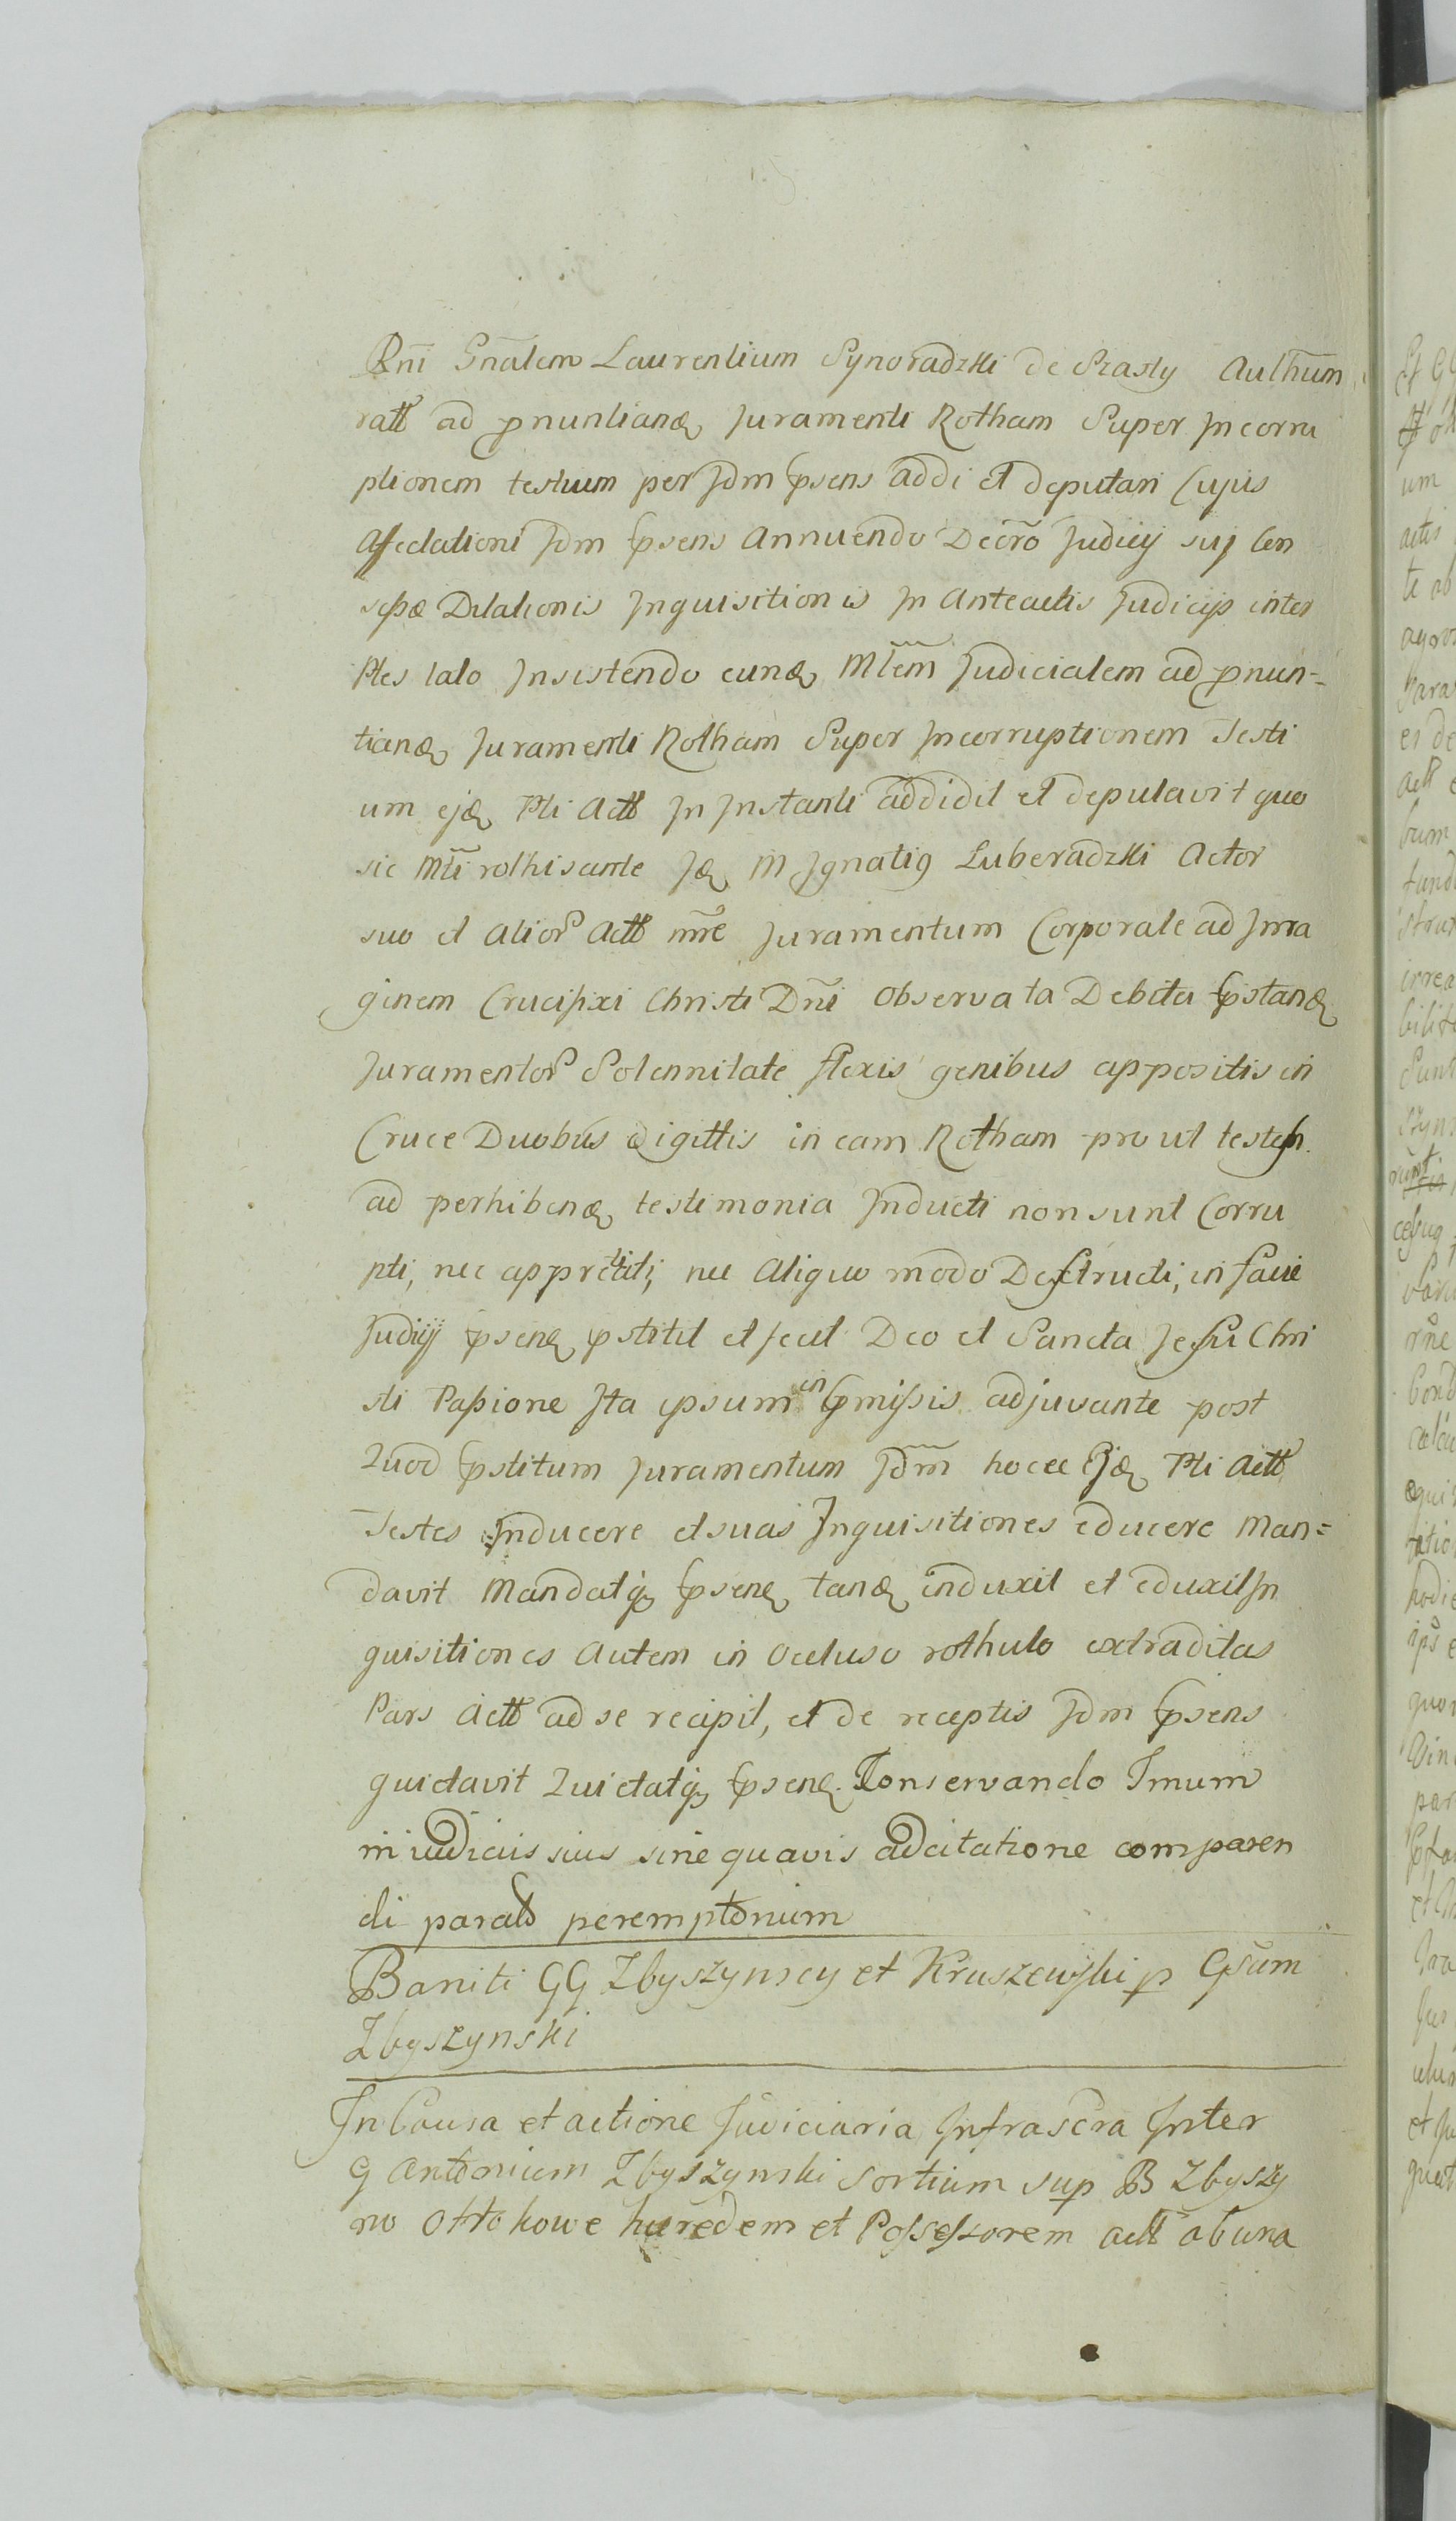 Rni Gnalem Laurentium Synoradzki de Szasty Authum
ratt ad pnuntianą Juramenti Rotham Super Incorru
ptionem testium per Jdm psens addi et deputari Cujus
Affectationi Jdm psens Annuendo Decro Judicij sui Con
scpæ Dilationis Inquisitionis In Anteactis Judicijs inter
Ptes lato Insistendo euną Mlem Judicialem ad pnun-
tianą Juramenti Rotham Super Incorruptionem Testi
um eją Pti Actt In Instanti addidit et deputavit quo
sic Mli rothisante Ją M Ignatig Luberadzki Actor
suo et alior Actt nne Juramentum Corporale ad Ima
ginem Crucifixi Christi Dni Observata Debita pstaną
Juramentor Solennitate flexis genibus appositis in
Cruce Duobus digittis in eam Rotham pro ut testes
ad perhibeną testimonia Inducti non sunt Corru
pti, nec appretiati, nec Aliquo modo Destructi, in facie
Judiij pseną pstitit et fecit Deo et Sancta Jesu Chri
sti Passione Ita ipsum in pmissis adjuvante post
Quod pstitum Juramentum Jdm hocce Eją Pti Actt
Testes Inducere et suas Inquisitiones educere Man=
davit Mandatq pseną taną induxit et eduxit In
quisitiones Autem in Occluso rothulo extraditas
Pars Actt ad se recipit, et de receptis Jdm psens
quictavit Quictatq pseną Conservando Tmum
in iudiciis suis sine quavis adcitatione comparen
di paratt peremptorium
Baniti GG Zbyszynscy et Kruszewski p Gsum
Zbyszynski
In Causa et actione Judiciaria Infrascra Inter
G Antonium Zbyszynski sortium sup B Zbyszy
no Ottokowe heredem et Possessorem actt ab una